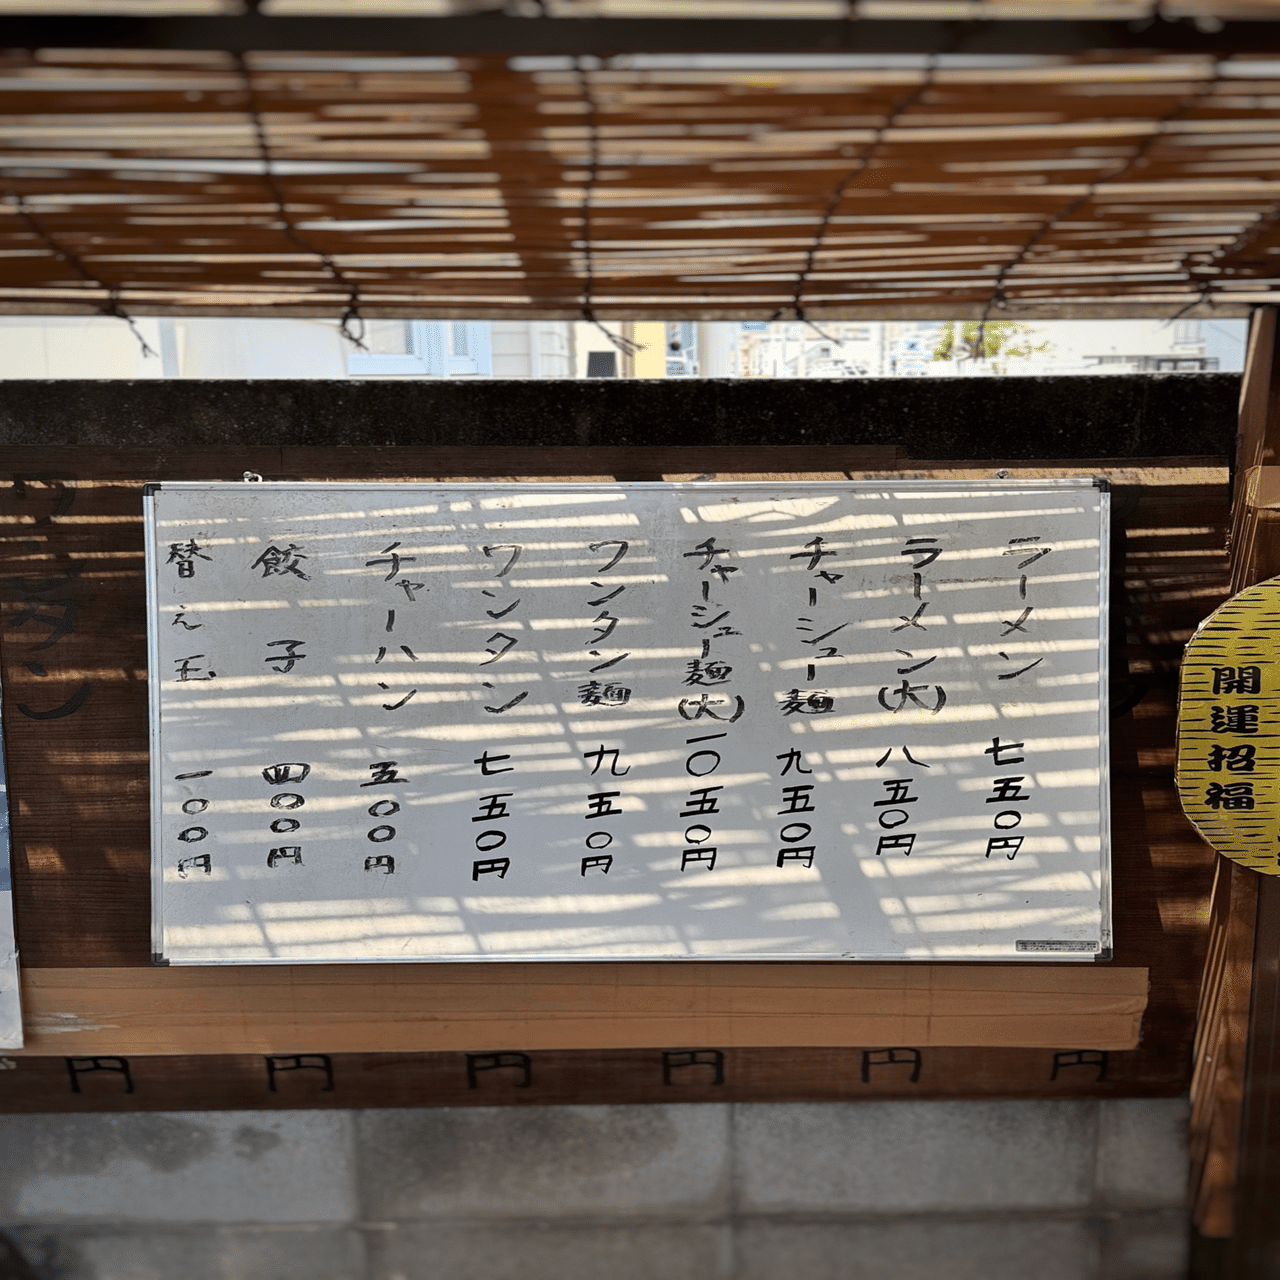 ラーメン 七五〇円
ラーメン(大) 八五〇円
チャーシュー麺 九五〇円
チャーシュー麺(大) 一〇五〇円
ワンタン麺 九五〇円
ワンタン 七五〇円
チャーハン 五〇〇円
餃子 四〇〇円
替え玉 一〇〇円
開運招福
ワンタン
円
円
円
円
円
円